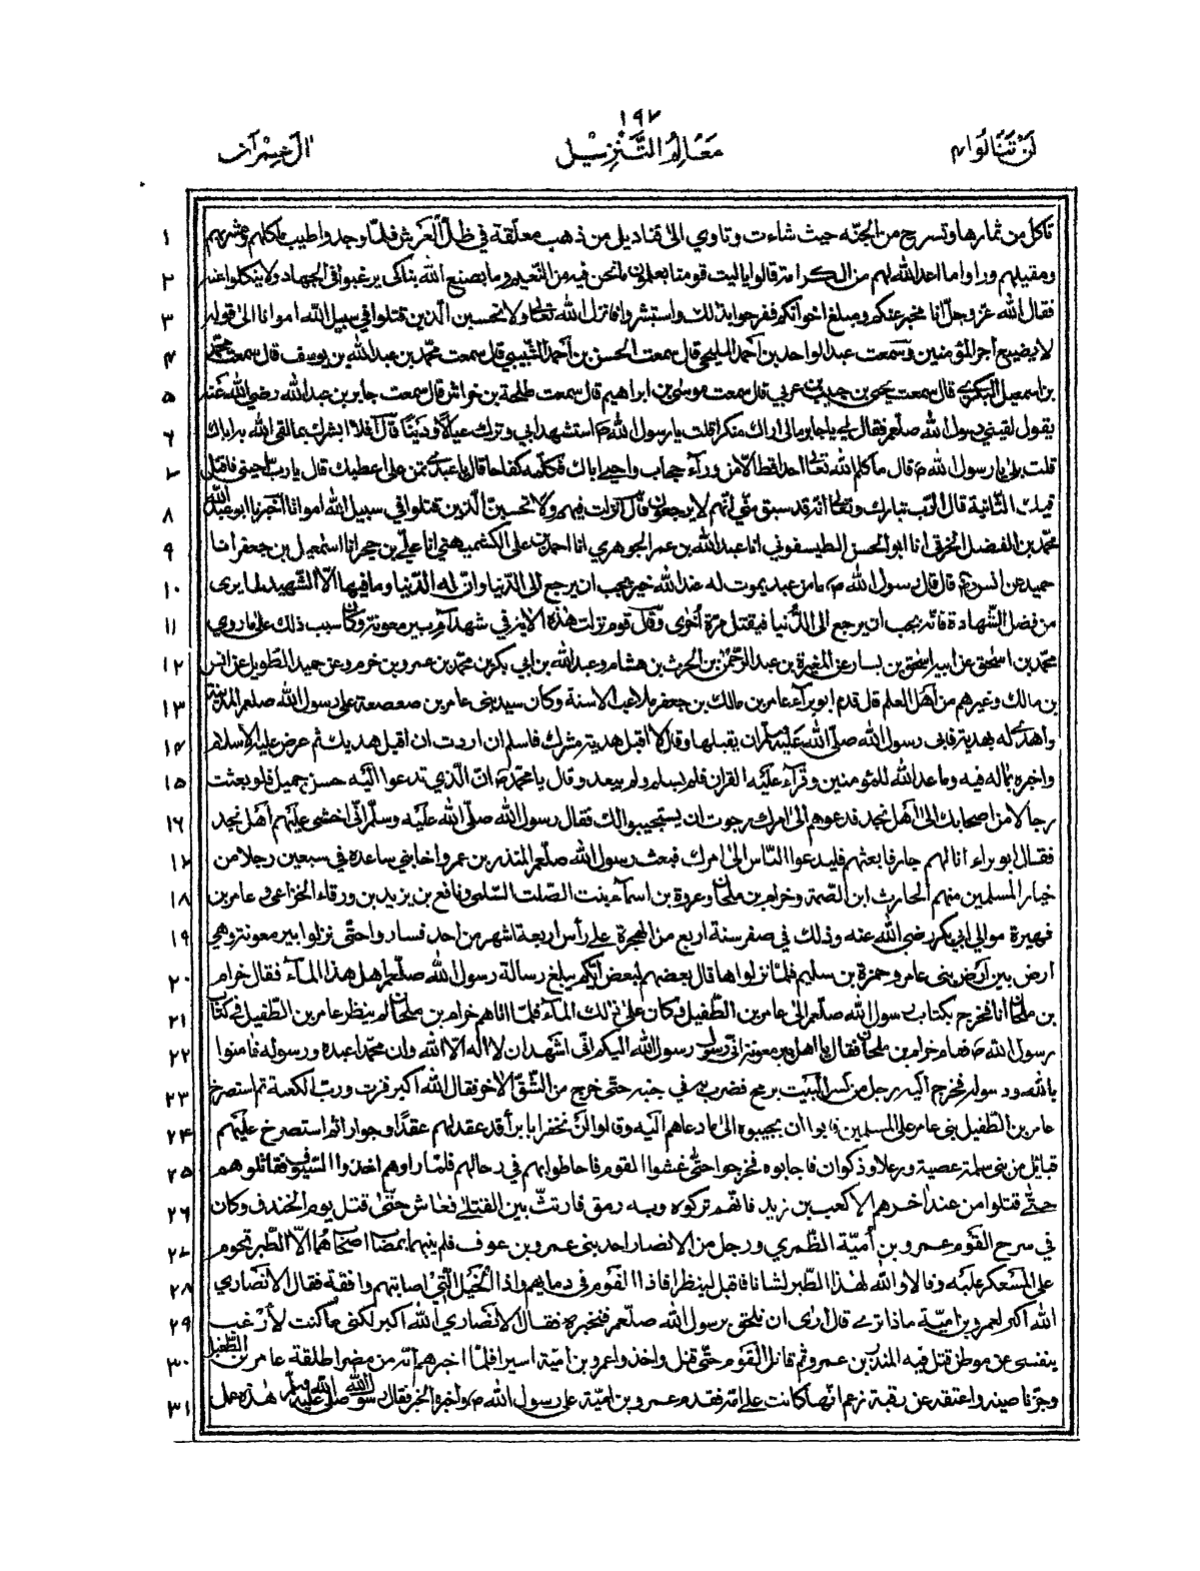 ١٩٧
لن تنالوا ٤ معالم التنزيل ال عمران
١ تاكل من ثمارها وتسرح من الجنة حيث شاءت وتاوي الى قناديل من ذهب معلقة في ظل العرش فلما وجدوا طيب ماكلهم ومشربهم
٢ ومقيلهم وراوا ما اعد الله لهم من الكرامة قالوا يا ليت قومنا يعلمون ما نحن فيه من النعيم وما يصنع الله بنا كى يرغبوا فى الجهاد ولا ينكلوا عنه
٣ فقال الله عز وجل انا مخبر عنكم ومبلغ اخوانكم ففرحوا بذلك واستبشروا فانزل الله تعالى ولا تحسبن الذين قتلوا في سبيل الله امواتا الى قوله
٤ لا يضيع اجر المؤمنين وسمعت عبد الواحد بن احمد المليحي قال سمعت الحسن بن احمد القتيبي قال سمعت محمد بن عبد الله بن يوسف قال سمعت محمد
٥ بن اسمعيل البكري قال سمعت يحيى بن حبيب بن عربي قال سمعت موسى بن ابراهيم قال سمعت طلحة بن خراش قال سمعت جابر بن عبد الله رضي الله عنه
٦ يقول لقيني رسول الله صلعم فقال لي يا جابر مالى اراك منكرا قلت يا رسول الله ص استشهد ابي وترك عيالا ودينا قال افلا ابشرك بما لقي الله به اباك
٧ قلت بلى يا رسول الله ص قال ما كلم الله تعالى احدا قط الا من وراء حجاب واحيى اباك فكلمه كفاحا قال يا عبدي تمن علي اعطيك قال يا رب احيني فاقتل
٨ فيك الثانية قال الرب تبارك وتعالى انه قد سبق مني انهم لا يرجعون قال انزلت فيهم ولا تحسبن الذين قتلوا في سبيل الله امواتا اخبرنا ابو عبد الله
٩ محمد بن الفضل الخرقي انا ابو الحسن الطيسفوني انا عبد الله بن عمر الجوهري انا احمد بن على الكشميهني انا علي بن حجر انا اسمعيل بن جعفر انا
١٠ حميد عن انس رض قال قال رسول الله ص ما من عبد يموت له عند الله خير يحب ان يرجع الى الدنيا وان له الدنيا وما فيها الا الشهيد لما يرى
١١ من فضل الشهادة فانه يحب ان يرجع الى الدنيا فيقتل مرة اخرى وقال قوم نزلت هذه الاية في شهداء بير معونة وكان سبب ذلك على ما روي
١٢ محمد بن اسحق عن ابيه اسحق بن يسار عن المغيرة بن عبد الرحمن بن الحرث بن هشام وعبد الله بن ابي بكر بن محمد بن عمرو بن خرم وعن حميد الطويل عن انس
١٣ بن مالك وغيرهم من اهل العلم قال قدم ابو براء عامر بن مالك بن جعفر ملاعب الاسنة وكان سيد بنى عامر بن صعصعة على رسول الله صلعم المدينة
١٤ واهدى له هدية فابى رسول الله صلى الله عليه وسلم ان يقبلها وقال لا اقبل هدية مشرك فاسلم ان اردت ان اقبل هديتك ثم عرض عليه الاسلام
١٥ واخبره بماله فيه وما عد الله للمؤمنين وقراء عليه القران فلم يسلم ولم يبعد وقال يا محمد ص ان الذي تدعوا اليه حسن جميل فلو بعثت
١٦ رجالا من اصحابك الى اهل نجد فدعوهم الى امرك رجوت ان يستجيبوا لك فقال رسول الله صلى الله عليه وسلم انى اخشى عليهم اهل نجد
١٧ فقال ابو براء انا لهم جار فابعثهم فليدعوا الناس الى امرك فبعث رسول الله صلعم المنذر بن عمرو اخا بني ساعدة في سبعين رجلا من
١٨ خيار المسلمين منهم الحارث ابن الصمة وخرام بن ملحان وعروة بن اسماء بنت الصلت السلمى ونافع بن يزيد بن ورقاء الخزاعى وعامر بن
١٩ فهيرة مولى ابي بكر رضى الله عنه وذلك في صفر سنة اربع من الهجرة على رأس اربعة اشهر من احد فساروا حتى نزلوا بير معونة وهي
٢٠ ارض بين ارض بنى عامر وحرة بن سليم فلما نزلوها قال بعضهم لبعض ايكم يبلغ رسالة رسول الله صلعم اهل هذا الماء فقال خرام
٢١ بن ملحان انا فخرج بكتاب رسول الله صلعم الى عامر بن الطفيل وكان على ذلك الماء فلما اتاهم خرام بن ملحان لم ينظر عامر بن الطفيل في كتاب
٢٢ رسول الله ص فقام خرام بن ملحان فقال يا اهل بير معونة اني رسول رسول الله اليكم انى اشهد ان لا اله الا الله وان محمدا عبده ورسوله فامنوا
٢٣ بالله ورسوله فخرج اليه رجل من كسر البيت برمح فضرب به في جنبه حتى خرج من الشق الاخر فقال الله اكبر فزت ورب الكعبة ثم استصرخ
٢٤ عامر بن الطفيل بنى عامر على المسلمين فابوا ان يجيبوه الى ما دعاهم اليه وقالوا لن نخفر ابا براء قد عقد لهم عقدا وجوارا ثم استصرخ عليهم
٢٥ قبائل من بنى سليم عصية ورعلا وذكوان فاجابوه فخرجوا حتى غشوا القوم فاحاطوا بهم في رحالهم فلما راوهم اخذوا السيوف فقاتلوهم
٢٦ حتى قتلوا من عند اخرهم الا كعب بن زيد فانهم تركوه وبه رمق فارتث بين القتلى فعاش حتى قتل يوم الخندق وكان
٢٧ في سرح القوم عمرو بن امية الضمري ورجل من الانصار احد بنى عمرو بن عوف فلم ينبهما بمصاب اصحابهما الا الطير تحوم
٢٨ على المسعكر عليه وقالا والله لهذا الطير لشانا فاقبلا لينظرا فاذا القوم فى دمايهم واذا الخيل التي اصابتهم واقفة فقال الانصاري
٢٩ الله اكبر لعمرو بن امية ماذا ترى قال ارى ان نلحق برسول الله صلعم فنخبره فقال الانصاري الله اكبر لكنى ما كنت لارغب
٣٠ بنفسى عن موطن قتل فيه المنذر بن عمرو ثم قاتل القوم حتى قتل واخذوا عمرو بن امية اسيرا فلما اخبرهم انه من مضر اطلقه عامر بن الطفيل
٣١ وجز ناصيته واعتقه عن رقبة زعم انها كانت على امه فقدم عمرو بن امية على رسول الله ص واخبره الخبر فقال رسول الله صلى الله عليه وسلم هذا عمل